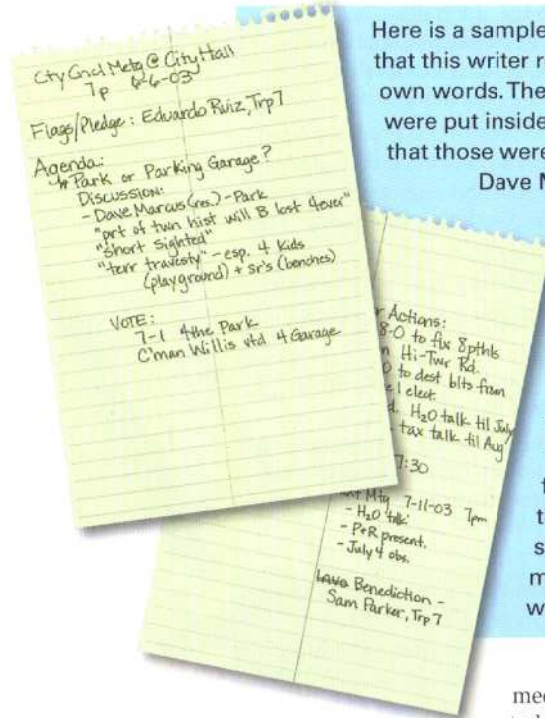 Here is a sample
that this writer r
own words. The
were put inside
that those were
Dave M
Cty Cncl Metg @ City Hall
7p 6-6-03
Flags/Pledge: Eduardo Ruiz, Trp 7
Agenda:
Park or Parking Garage?
Discussion:
- Dave Marcus (res.) - Park
"prt of twn hist will B lost 4ever"
"short sighted"
"terr travesty" - esp. 4 kids
(playground) + Sr's (benches)
VOTE:
7-1 4 the Park
C'man Willis vtd 4 Garage
r Actions:
8-0 to fix 8 pthls
n Hi-Twr Rd.
0 to dest blts from
1 elect.
d. H₂O talk til July
tax talk til Aug
7:30
xt Mtg 7-11-03 7pm
- H₂O talk
- P+R present.
- July 4 obs.
Benediction -
Sam Parker, Trp 7
f
t
s
m
w
mee